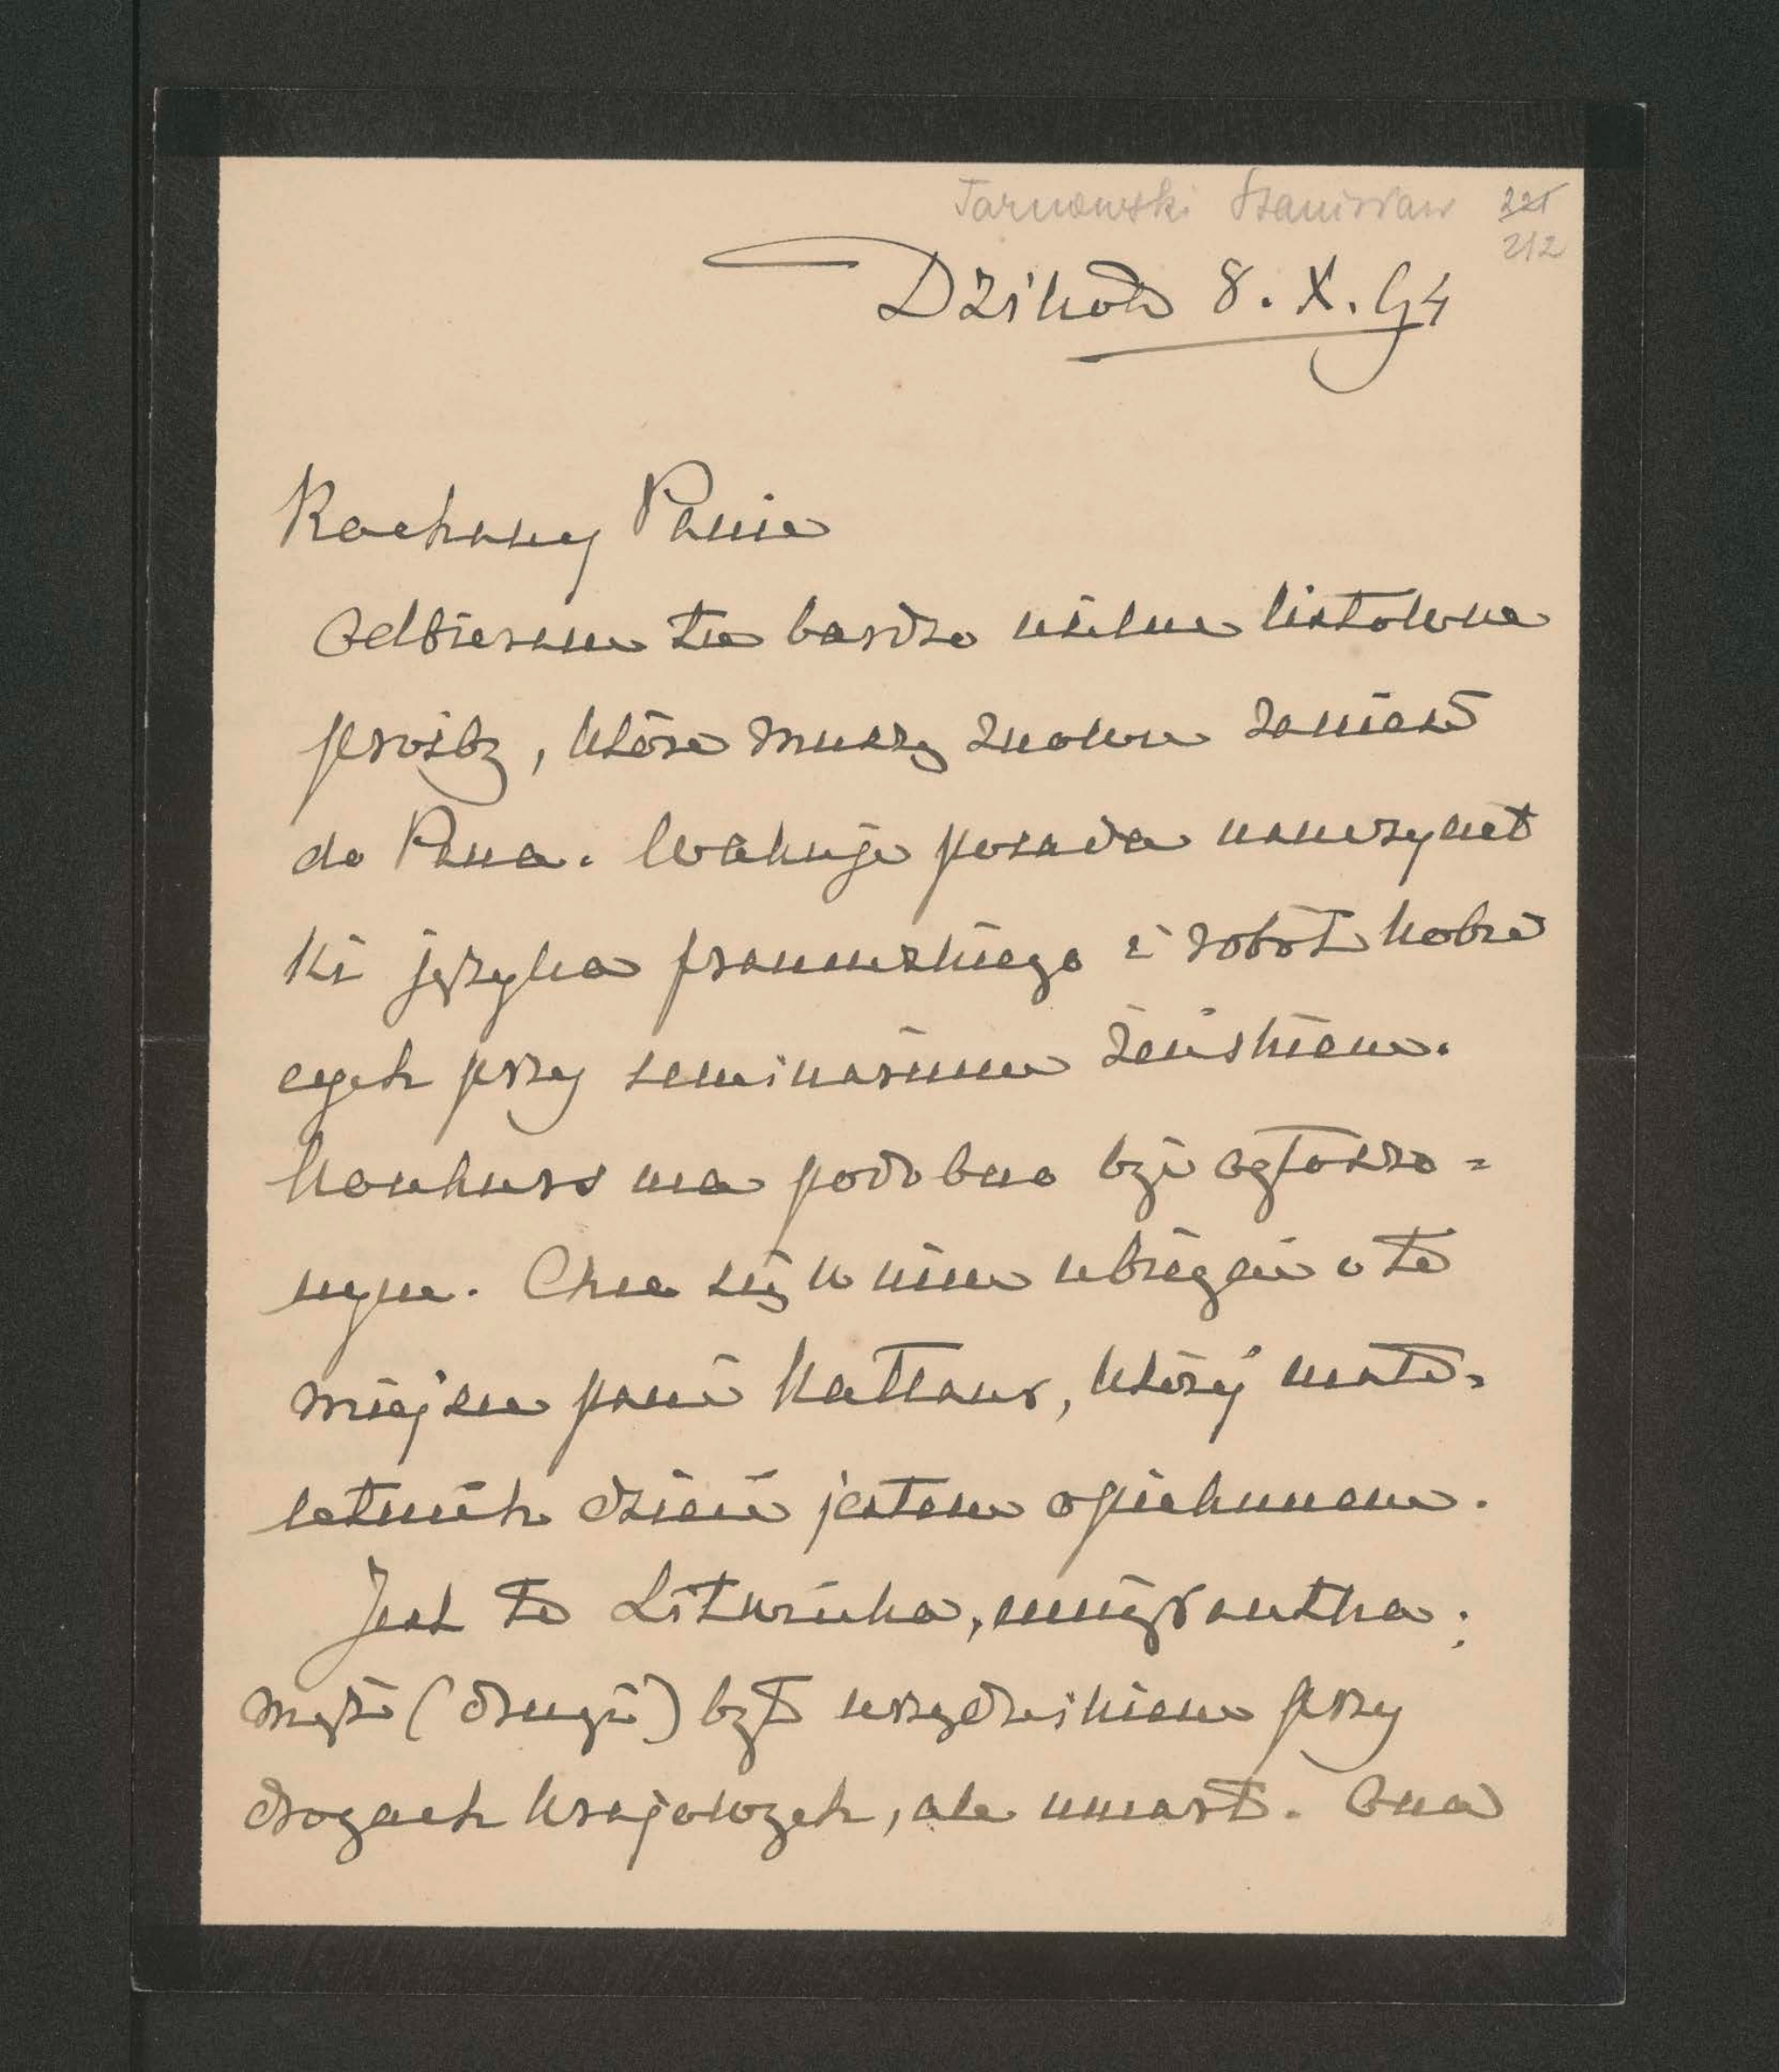 Tarnowski Stanisław 221
212
Dzików 8. X. 94
Kochany Panie
Odbieram tu bardzo usilne listowne
prośby, które muszę znowu zanieść
do Pana. Wakuje posada nauczyciel
ki języka francuzkiego i robót kobie
cych przy seminarium żeńskiem.
Konkurs ma podobno być ogłoszo=
nym. Chce się w nim ubiegać o to
miejsce pani Kattaur, której mało=
letnich dzieci jestem opiekunem.
Jest to Litwinka, emigrantka;
mąż (drugi) był urzędnikiem przy
drogach krajowych, ale umarł. Ona